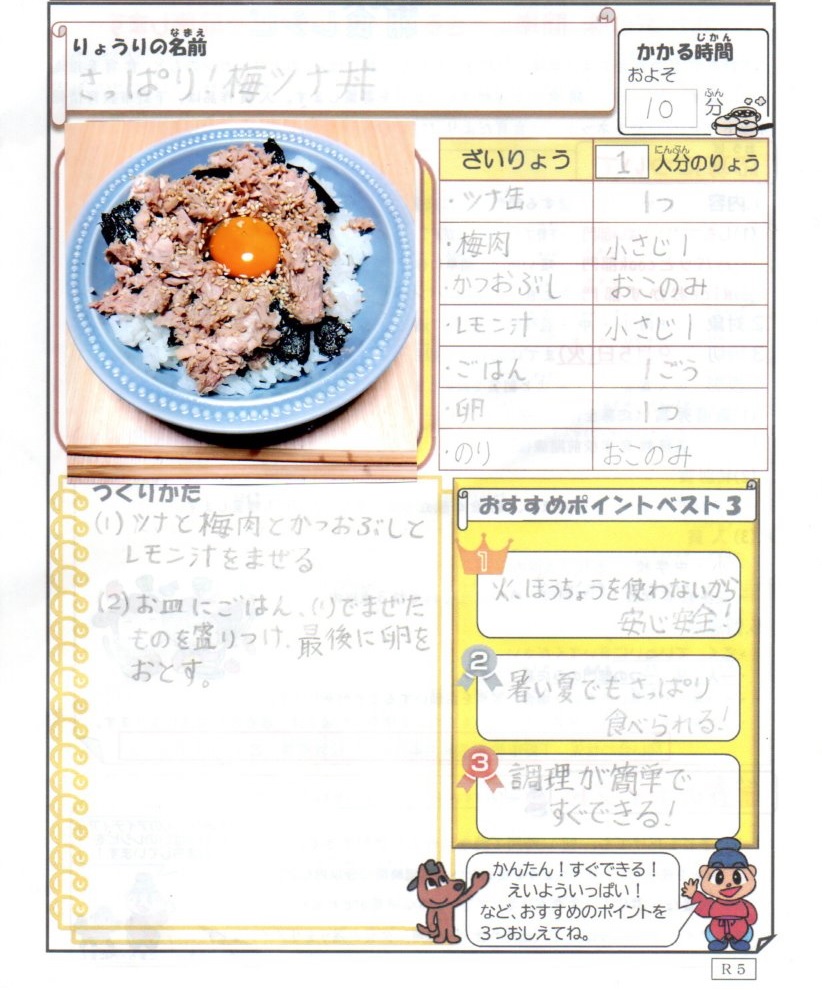 りょうりの名前
なまえ
さっぱり!梅ツナ丼
かかる時間
じかん
およそ
10 分
ふん
ざいりょう
1 人分のりょう
にんぶん
・ツナ缶 1つ
・梅肉 小さじ1
・かつおぶし おこのみ
・レモン汁 小さじ1
・ごはん 1ごう
・卵 1つ
・のり おこのみ
つくりかた
(1)ツナと梅肉とかつおぶしと
レモン汁をまぜる
(2)お皿にごはん、(1)でまぜた
ものを盛りつけ、最後に卵を
おとす。
おすすめポイントベスト3
1
火、ほうちょうを使わないから
安心安全!
2
暑い夏でもさっぱり
食べられる!
3
調理が簡単で
すぐできる!
かんたん!すぐできる!
えいよういっぱい!
など、おすすめのポイントを
3つおしえてね。
R5